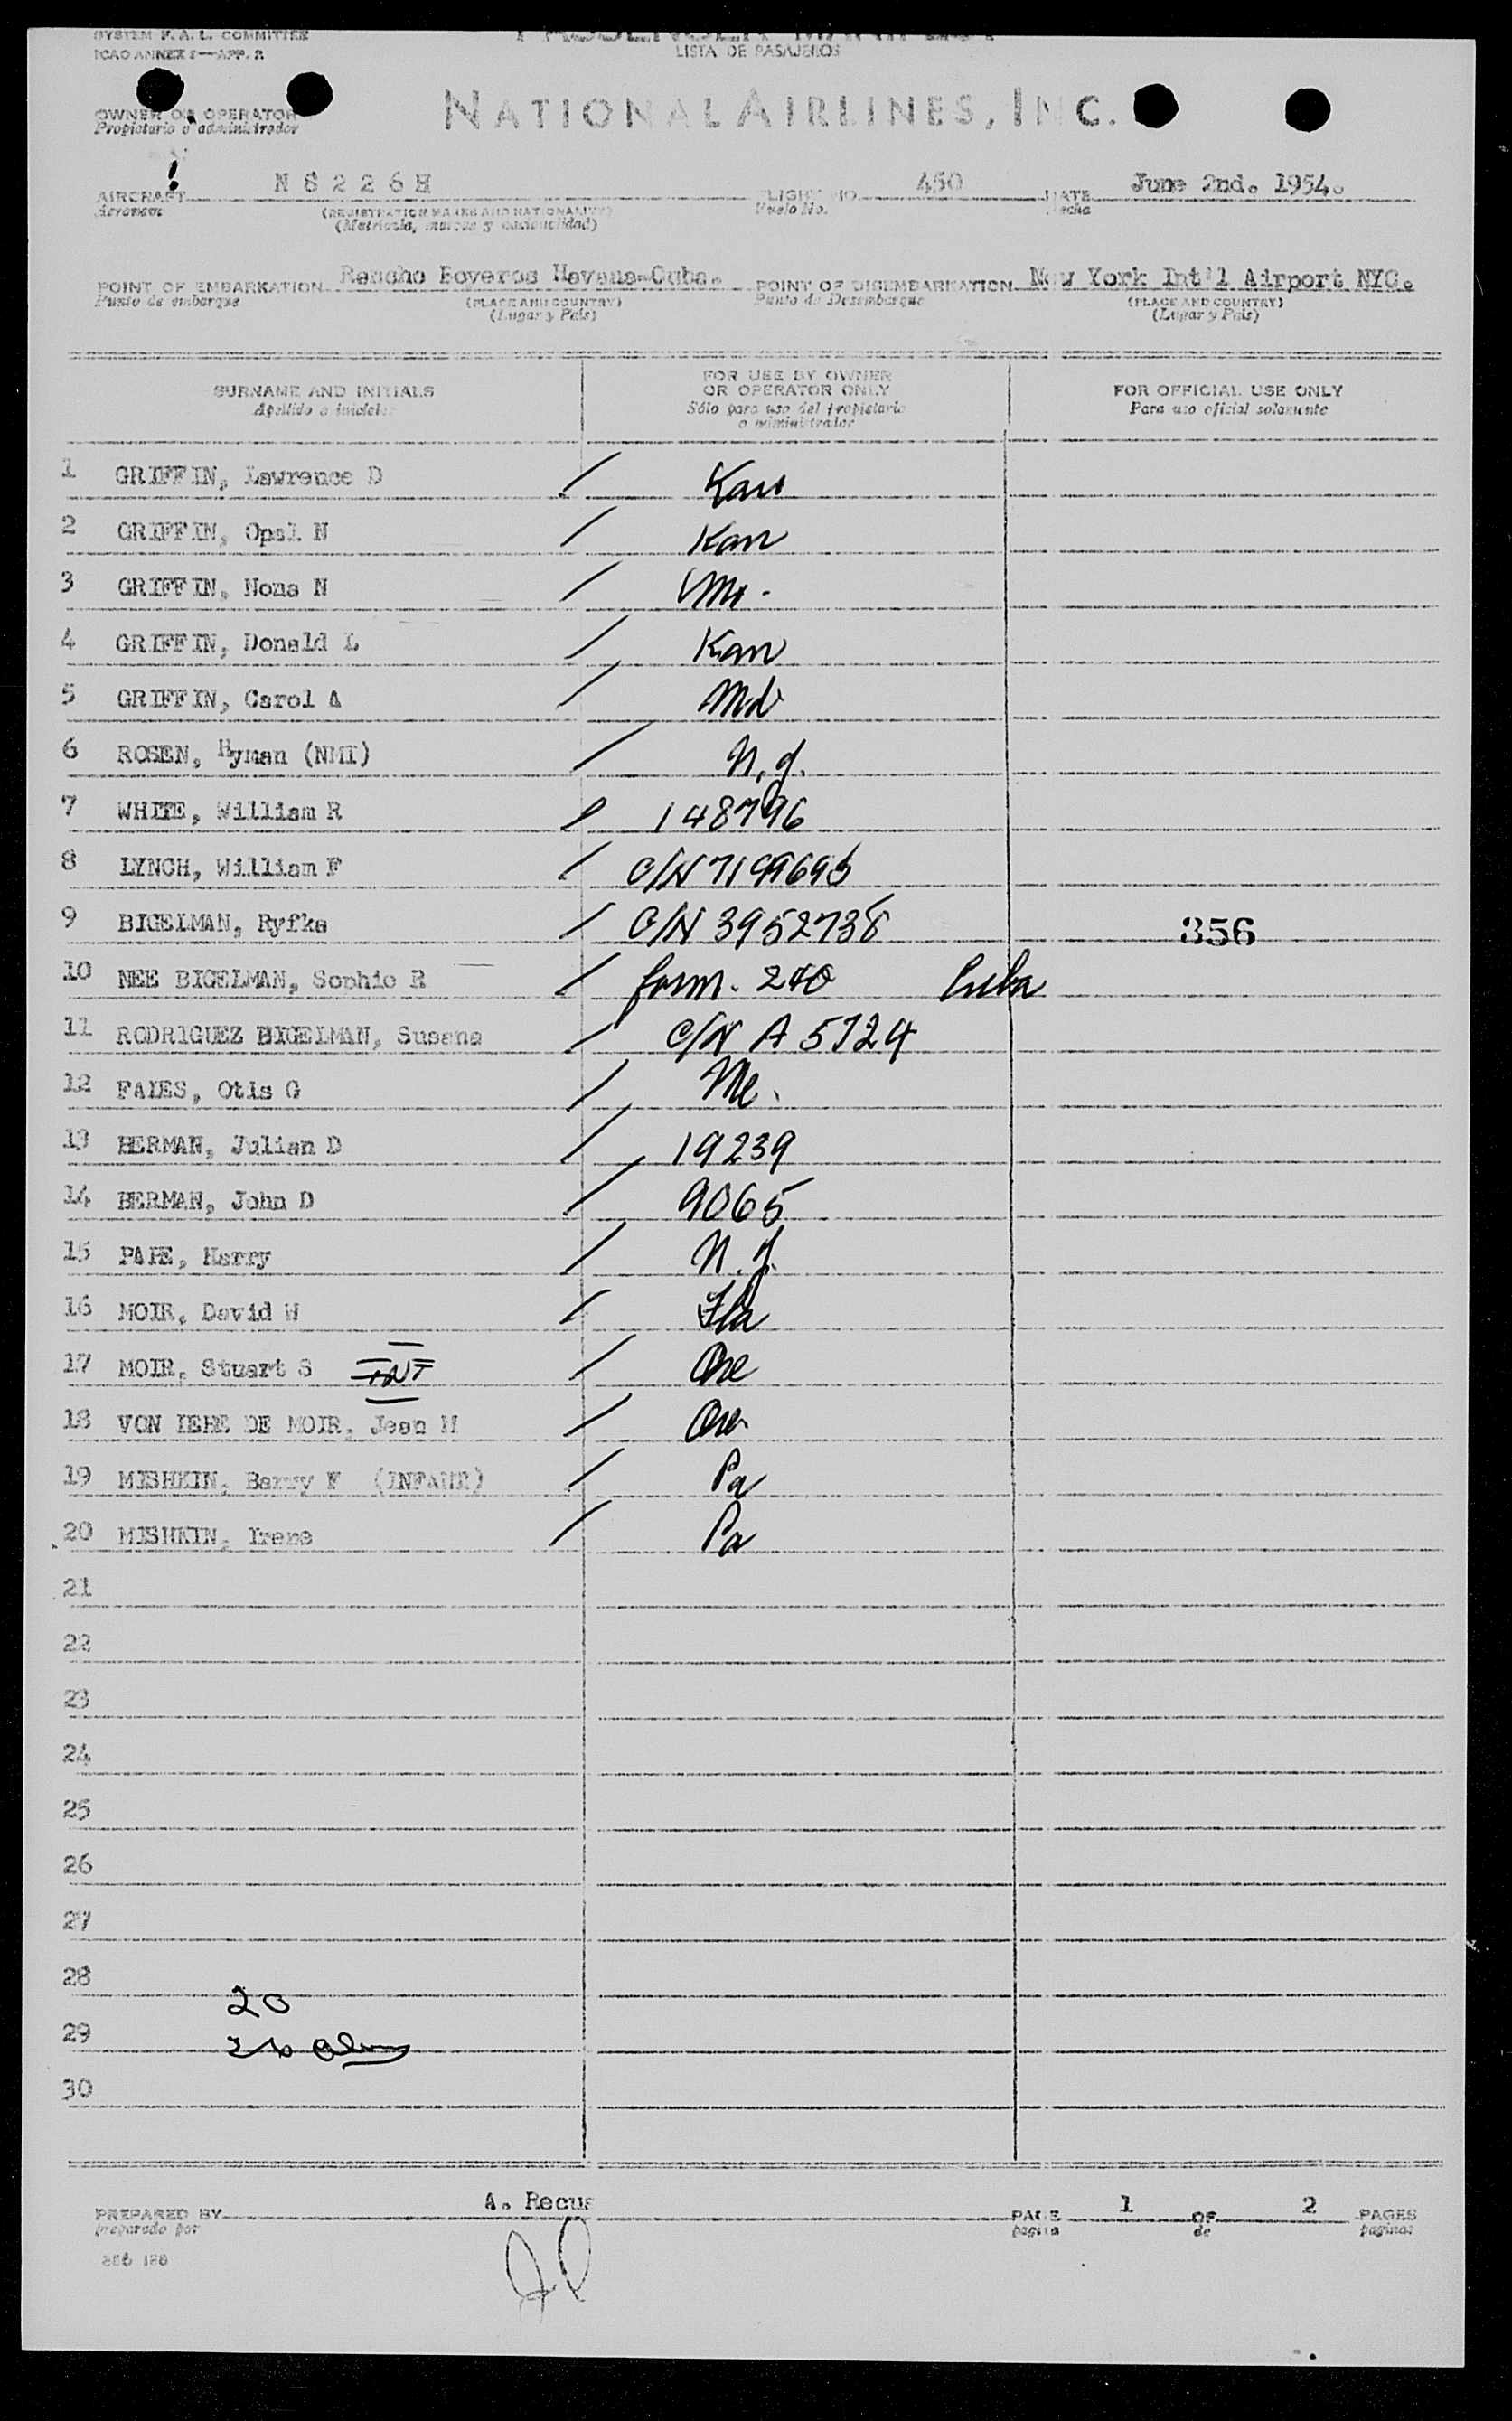 SYSTEM F. A. L. COMMITTEE
ICAO ANNEX 9—APP. 2
PASSENGER MANIFEST
LISTA DE PASAJEROS
OWNER OR OPERATOR
Propietario o administrador
NATIONAL AIRLINES, INC.
AIRCRAFT N 8 2 2 6 H FLIGHT NO. 450 DATE June 2nd. 1954.
Aeronave (REGISTRATION MARKS AND NATIONALITY) Vuelo No. Fecha
(Matricula, marcas y nacionalidad)
POINT OF EMBARKATION Rancho Boyeros Havana-Cuba. POINT OF DISEMBARKATION New York Int'l Airport NYC.
Punto de embarque (PLACE AND COUNTRY) Punto de Desembarque (PLACE AND COUNTRY)
(Lugar y Pais) (Lugar y Pais)
SURNAME AND INITIALS FOR USE BY OWNER OR OPERATOR ONLY FOR OFFICIAL USE ONLY
Apellido e iniciales Sólo para uso del propietario o administrador Para uso oficial solamente
1 GRIFFIN, Lawrence D / Kan
2 GRIFFIN, Opal N / Kan
3 GRIFFIN, Nona N / Mo.
4 GRIFFIN, Donald L / Kan
5 GRIFFIN, Carol A / Md
6 ROSEN, Hyman (NMI) / N.J.
7 WHITE, William R / 148796
8 LYNCH, William F / C/N 7199695
9 BIGELMAN, Ryfka / C/N 3952738 356
10 NEE BIGELMAN, Sophie R / form. 240 Cuba
11 RODRIGUEZ BIGELMAN, Susana / C/N A 5724
12 FALES, Otis G / Me.
13 HERMAN, Julian D / 19239
14 HERMAN, John D / 9065
15 PAPE, Harry / N.J.
16 MOIR, David W / Fla
17 MOIR, Stuart S INT / Ore
18 VON LEHE DE MOIR, Jean M / Ore
19 MISHKIN, Barry F (INFANT) / Pa
20 MISHKIN, Irene / Pa
21
22
23
24
25
26
27
28
20
29
30
PREPARED BY A. Recus PAGE 1 OF 2 PAGES
preparado por pagina de paginas